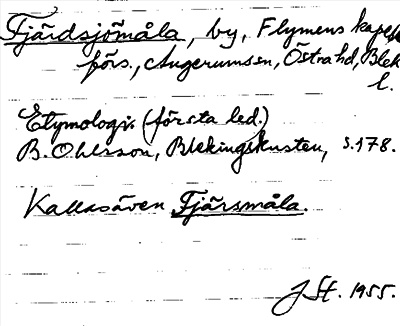 Fjärdsjömåla, by, Flymens kapell
förs., Augerumssn, Östra hd, Blek
l.
Etymologi: (första led.)
B. Ohlsson, Blekingekusten, s. 178.
Kallas även Fjärsmåla.
J St. 1955.